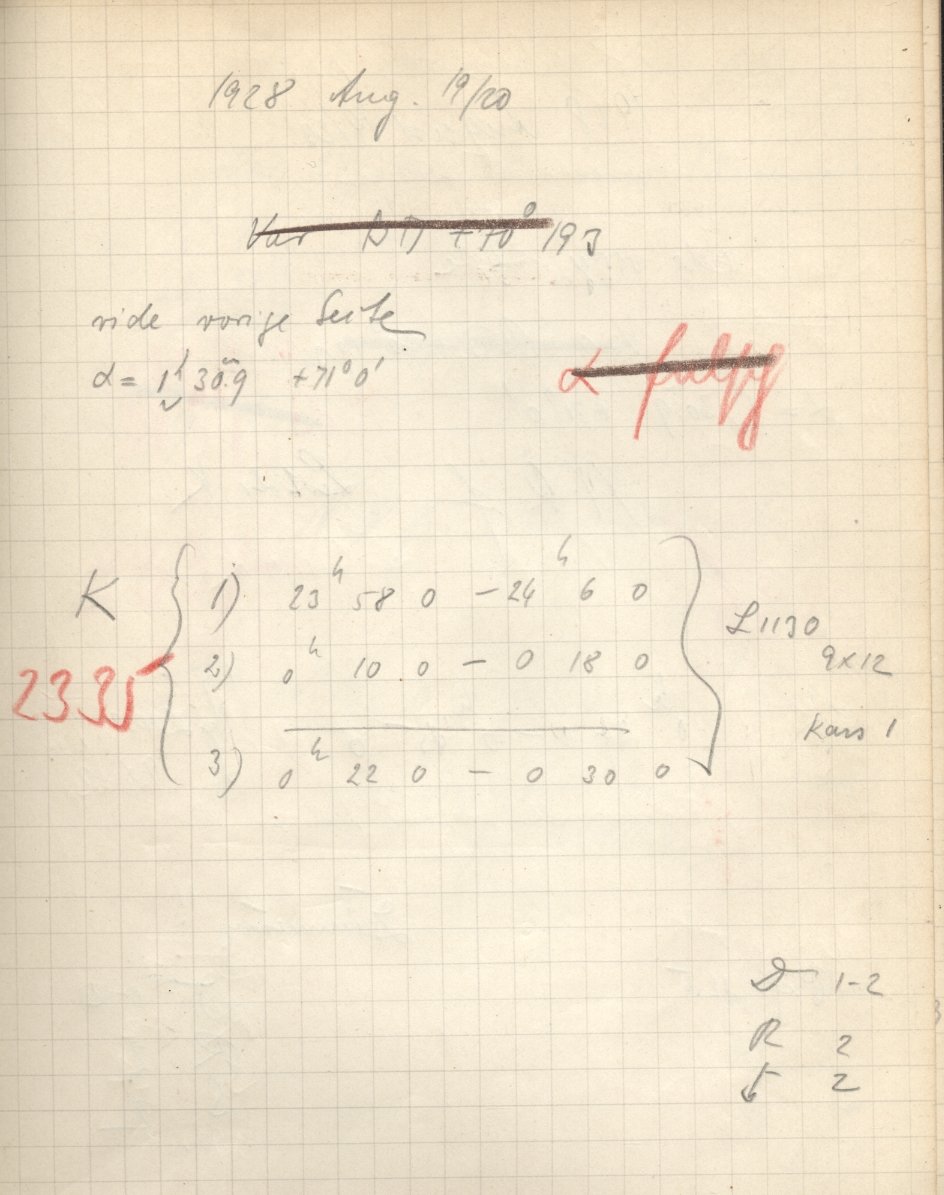 1928 Aug. 19/20
Var BD +70° 193
vide vorige Seite
α = 1ʰ 30ᵐ.9 +71° 0'
α falsch
K 2335
1) 23ʰ 58 0 – 24ʰ 6 0
2) 0ʰ 10 0 – 0 18 0
3) 0ʰ 22 0 – 0 30 0
L 1130
9x12
Kass 1
D 1-2
R 2
F 2